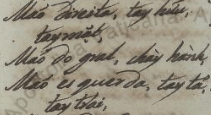 Mão direita, tay hữu,
tay mặt,
Mão do gral, chày hành,
Mão esquerda, tay tả,
tay trái,